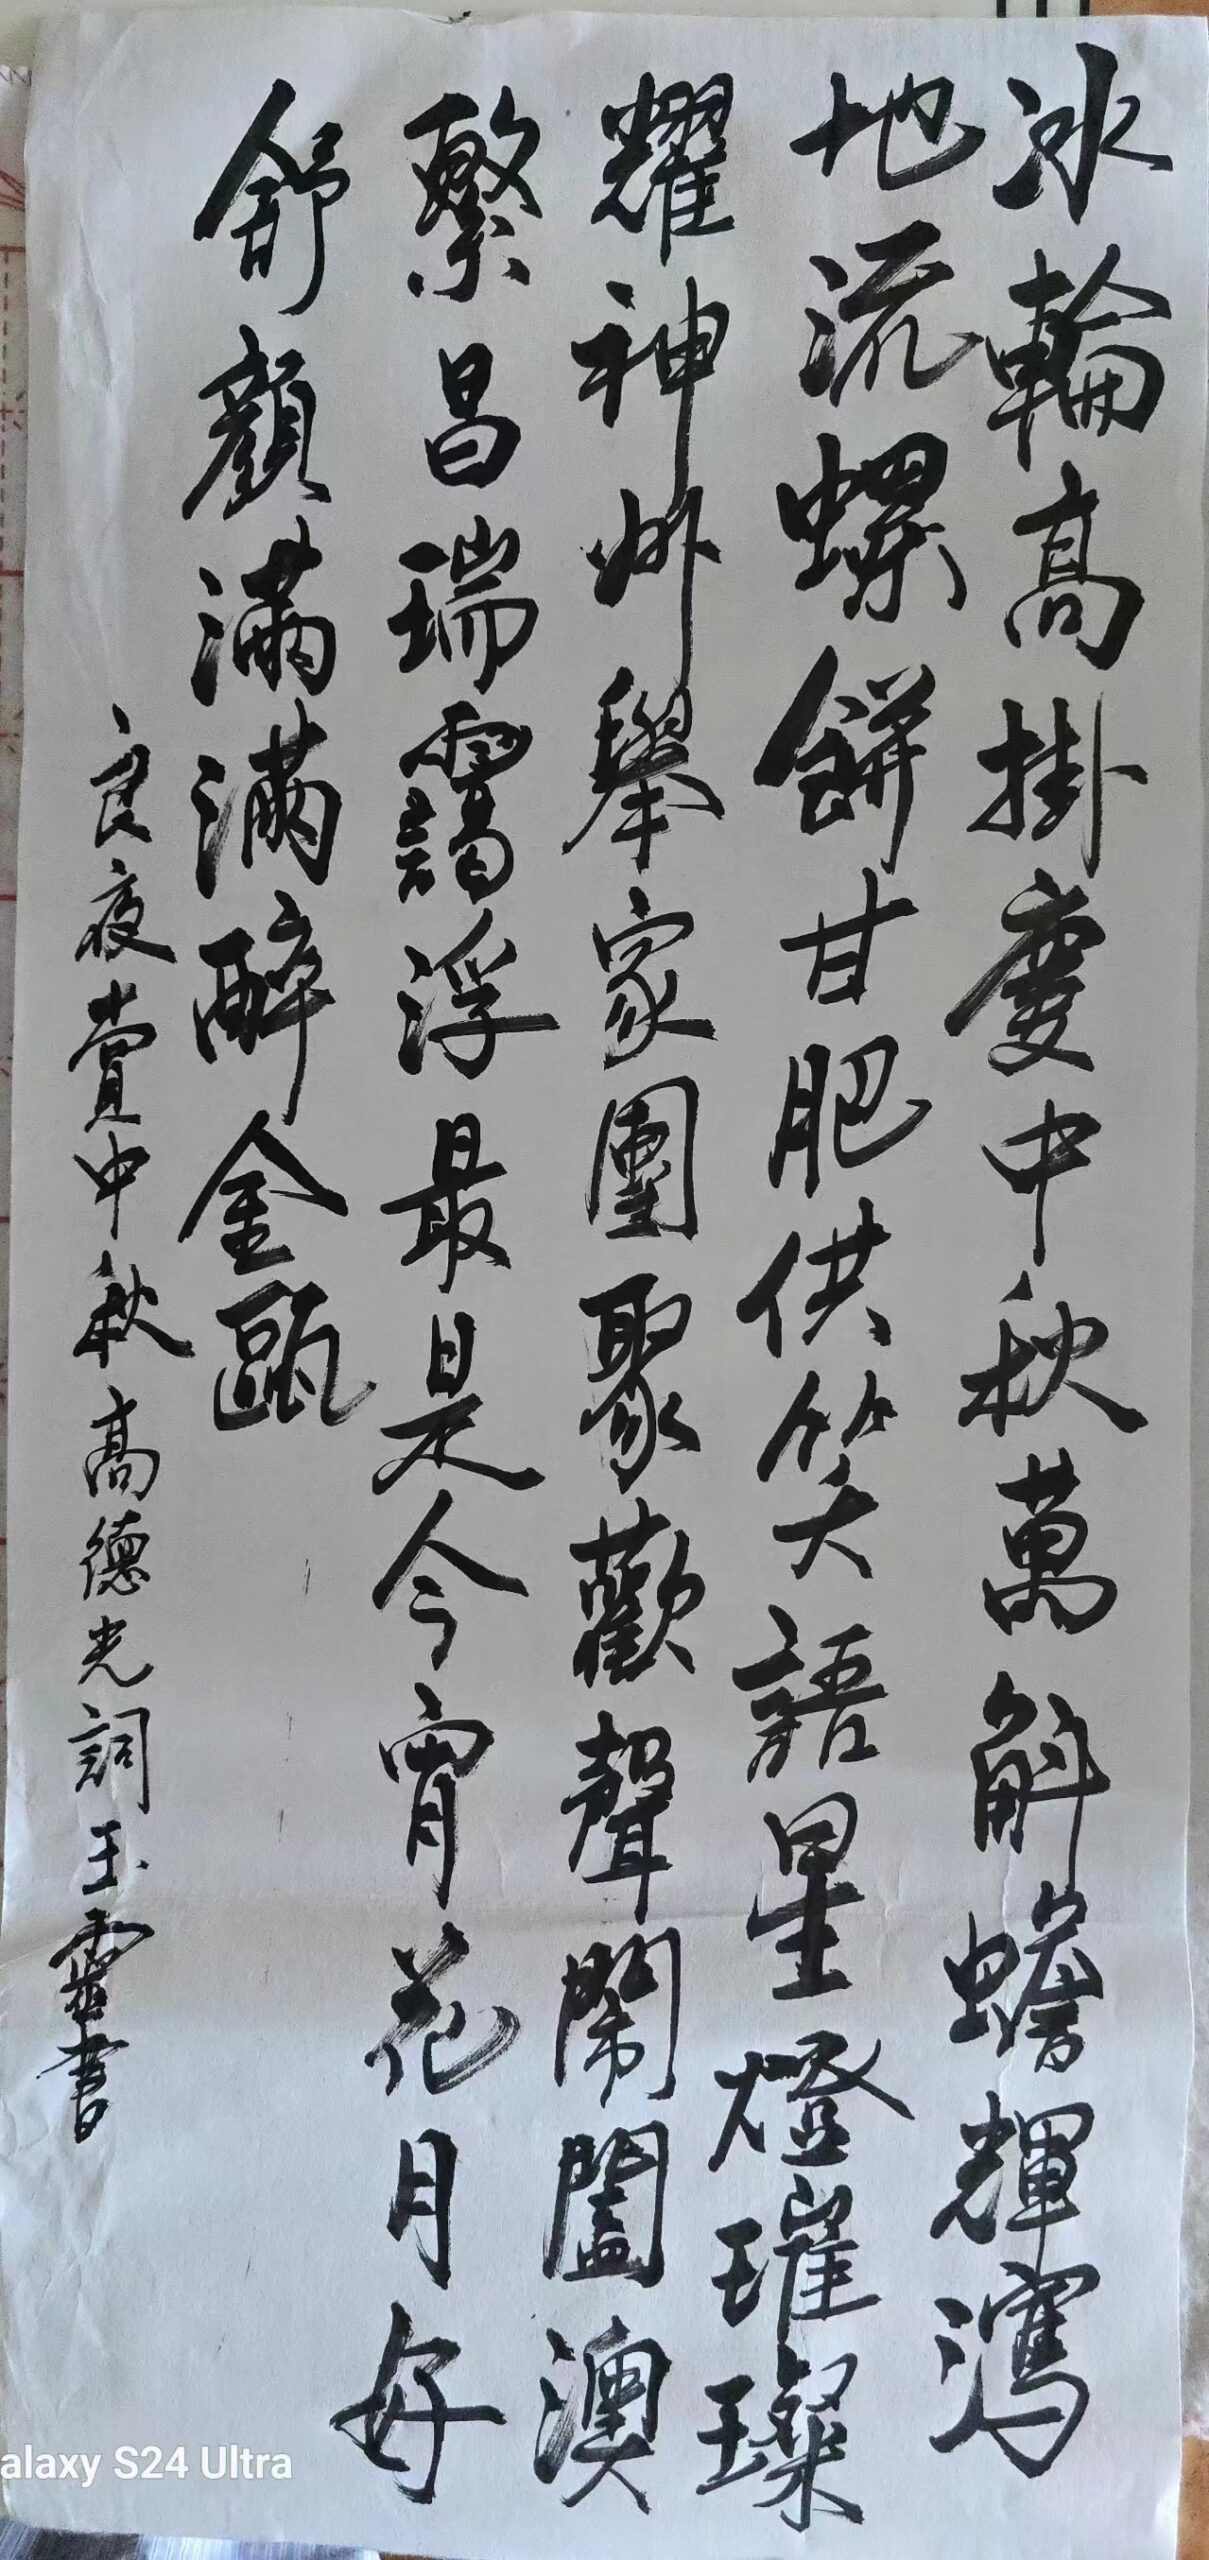 冰輪高掛慶中秋萬斛蟾輝瀉
地流螺餅甘肥供笑語星燈璀璨
耀神州舉家團聚歡聲鬧闔澳
繁昌瑞靄浮最是今宵花月好
舒顏滿滿醉金甌
良夜賞中秋高德光詞玉靈書
alaxy S24 Ultra